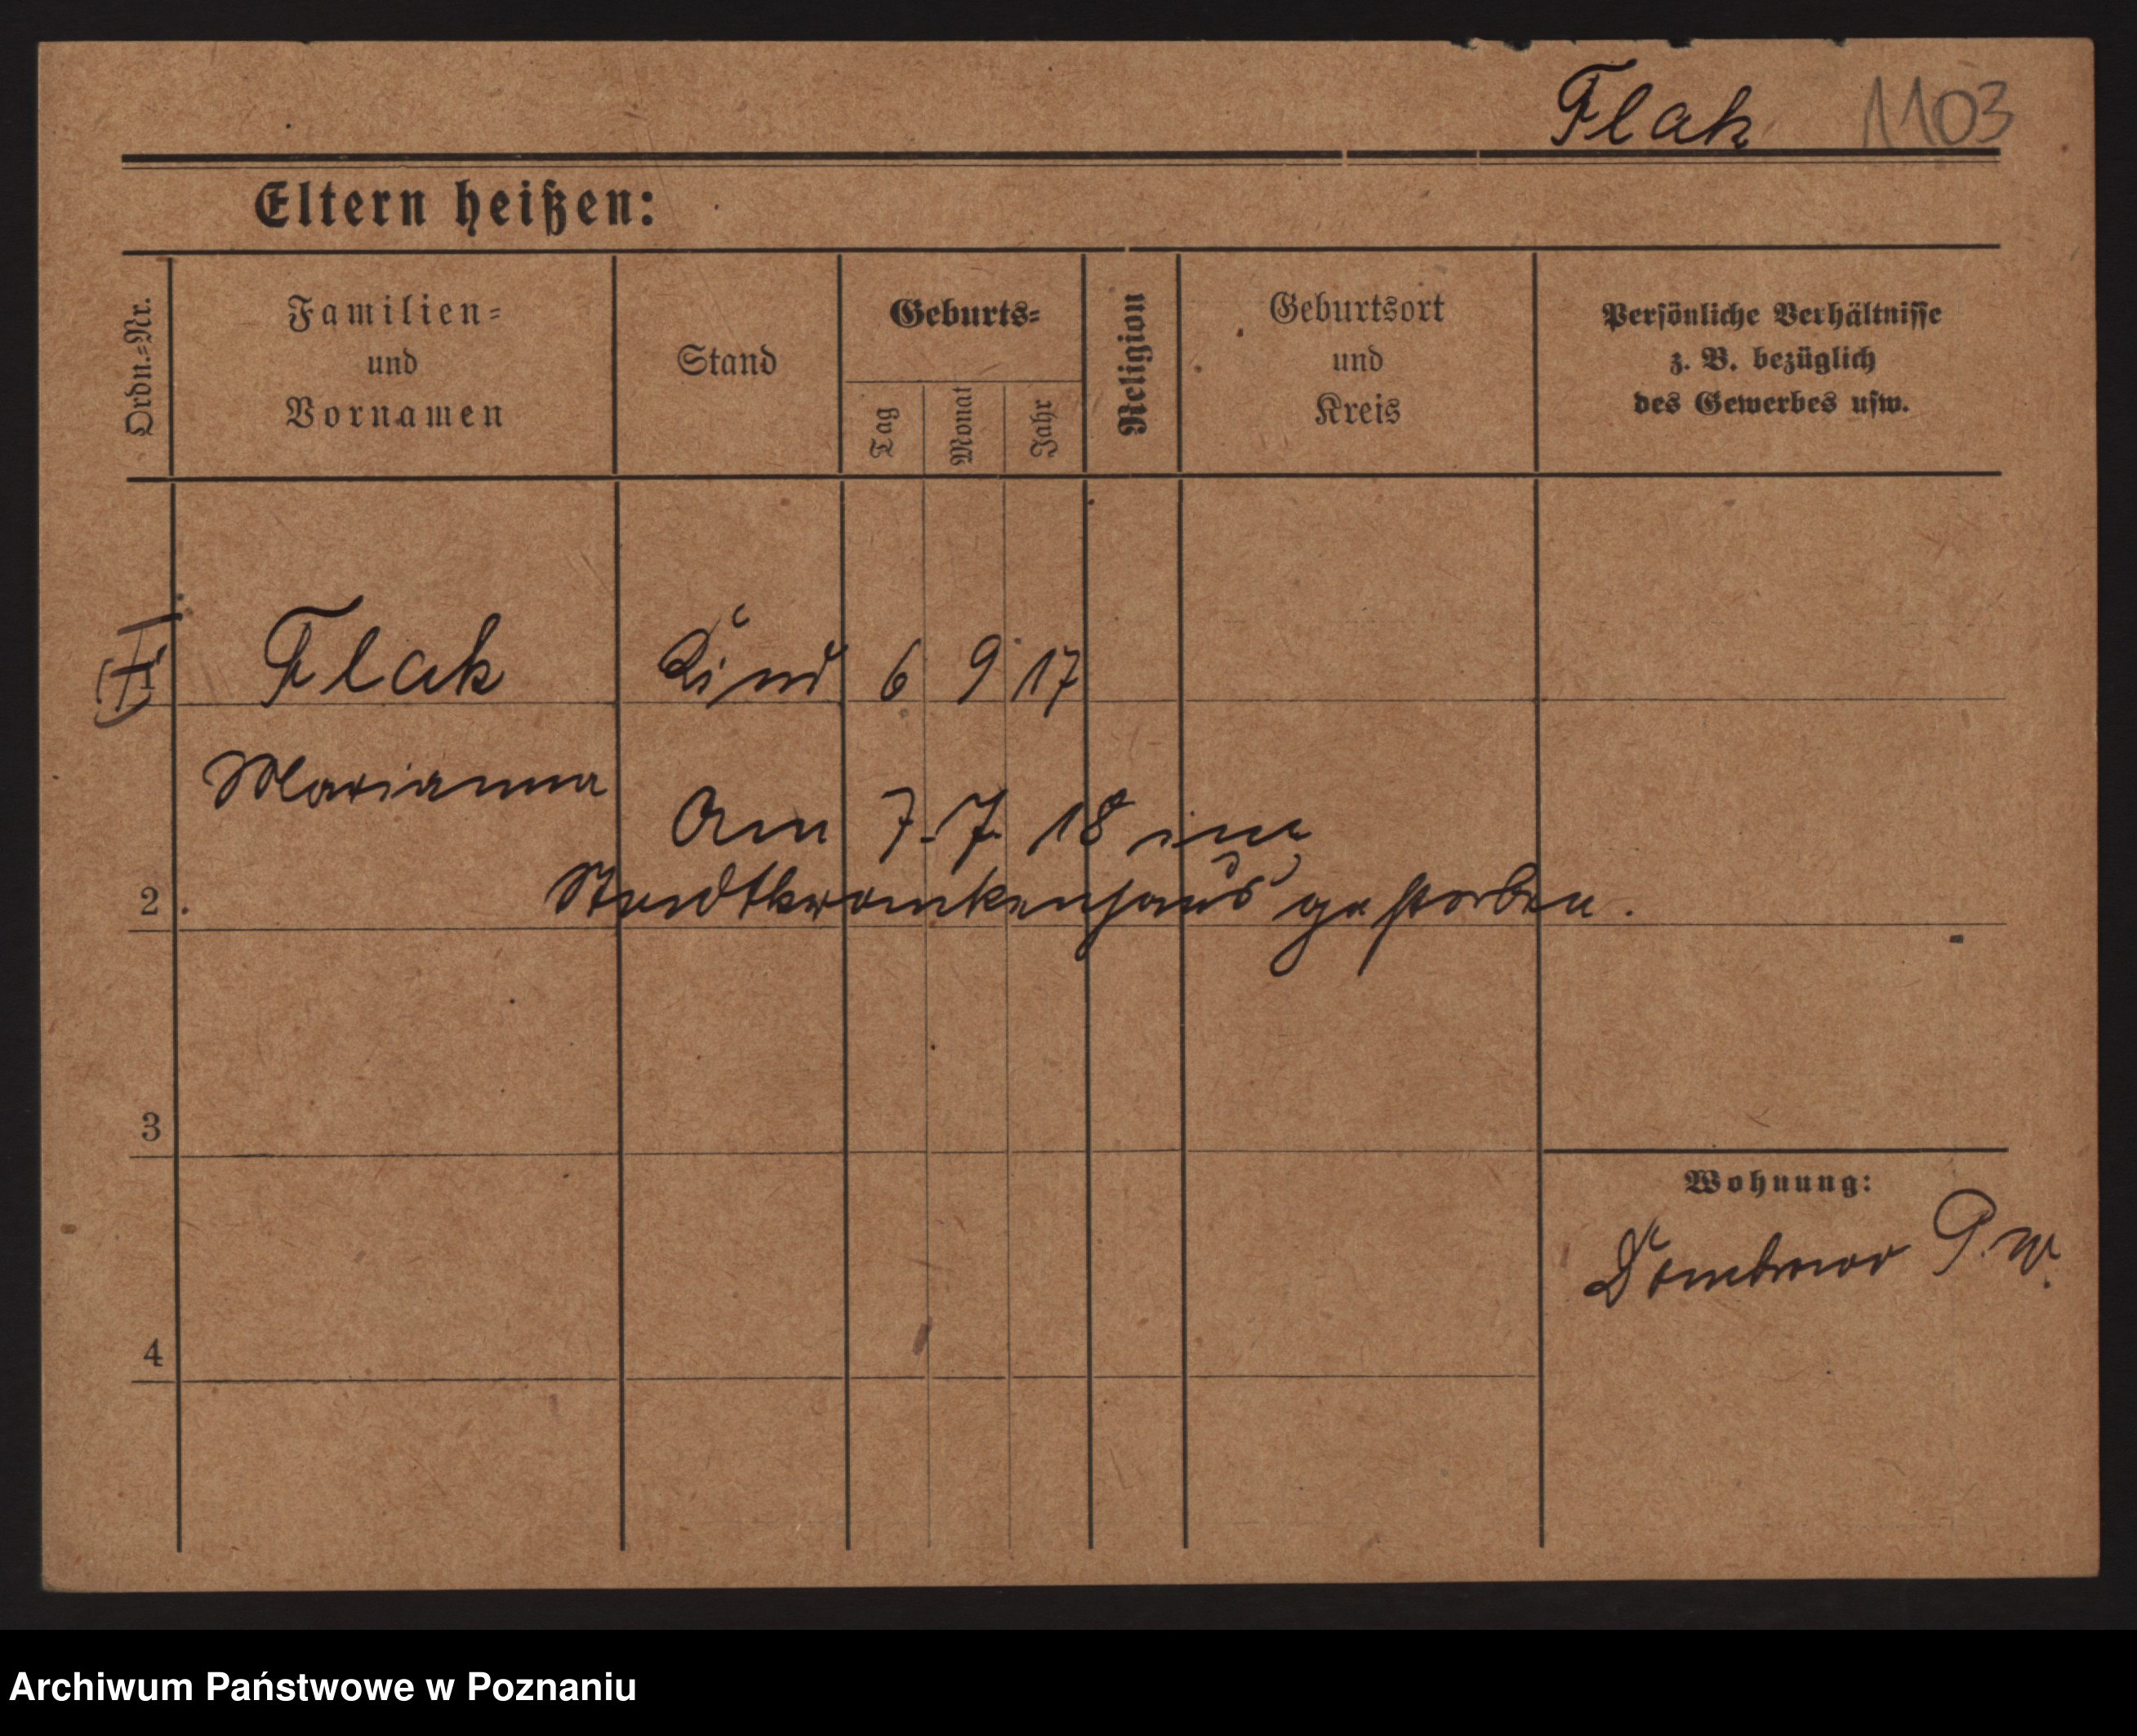 Flak 1103
Eltern heißen:
Ordn.-Nr.
Familien-
und
Vornamen
Stand
Geburts-
Tag
Monat
Jahr
Religion
Geburtsort
und
Kreis
Persönliche Verhältnisse
z. B. bezüglich
des Gewerbes usw.
1 Flak Kind 6 9 17
Marianna
Am 7. 7. 18 im
2 Stadtkrankenhaus gestorben.
3
Wohnung:
P. W.
4
Archiwum Państwowe w Poznaniu